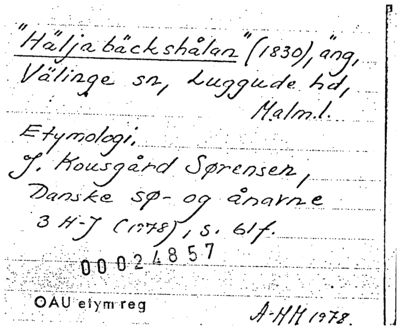 "Häljabäckshålan" (1830), äng,
Välinge sn, Luggude hd,
Malm.l.
Etymologi.
J. Kousgård Sørensen,
Danske sø- og ånavne
3 H-J (1978), s. 61f.
00024857
OAU etym reg
A-HH 1978.